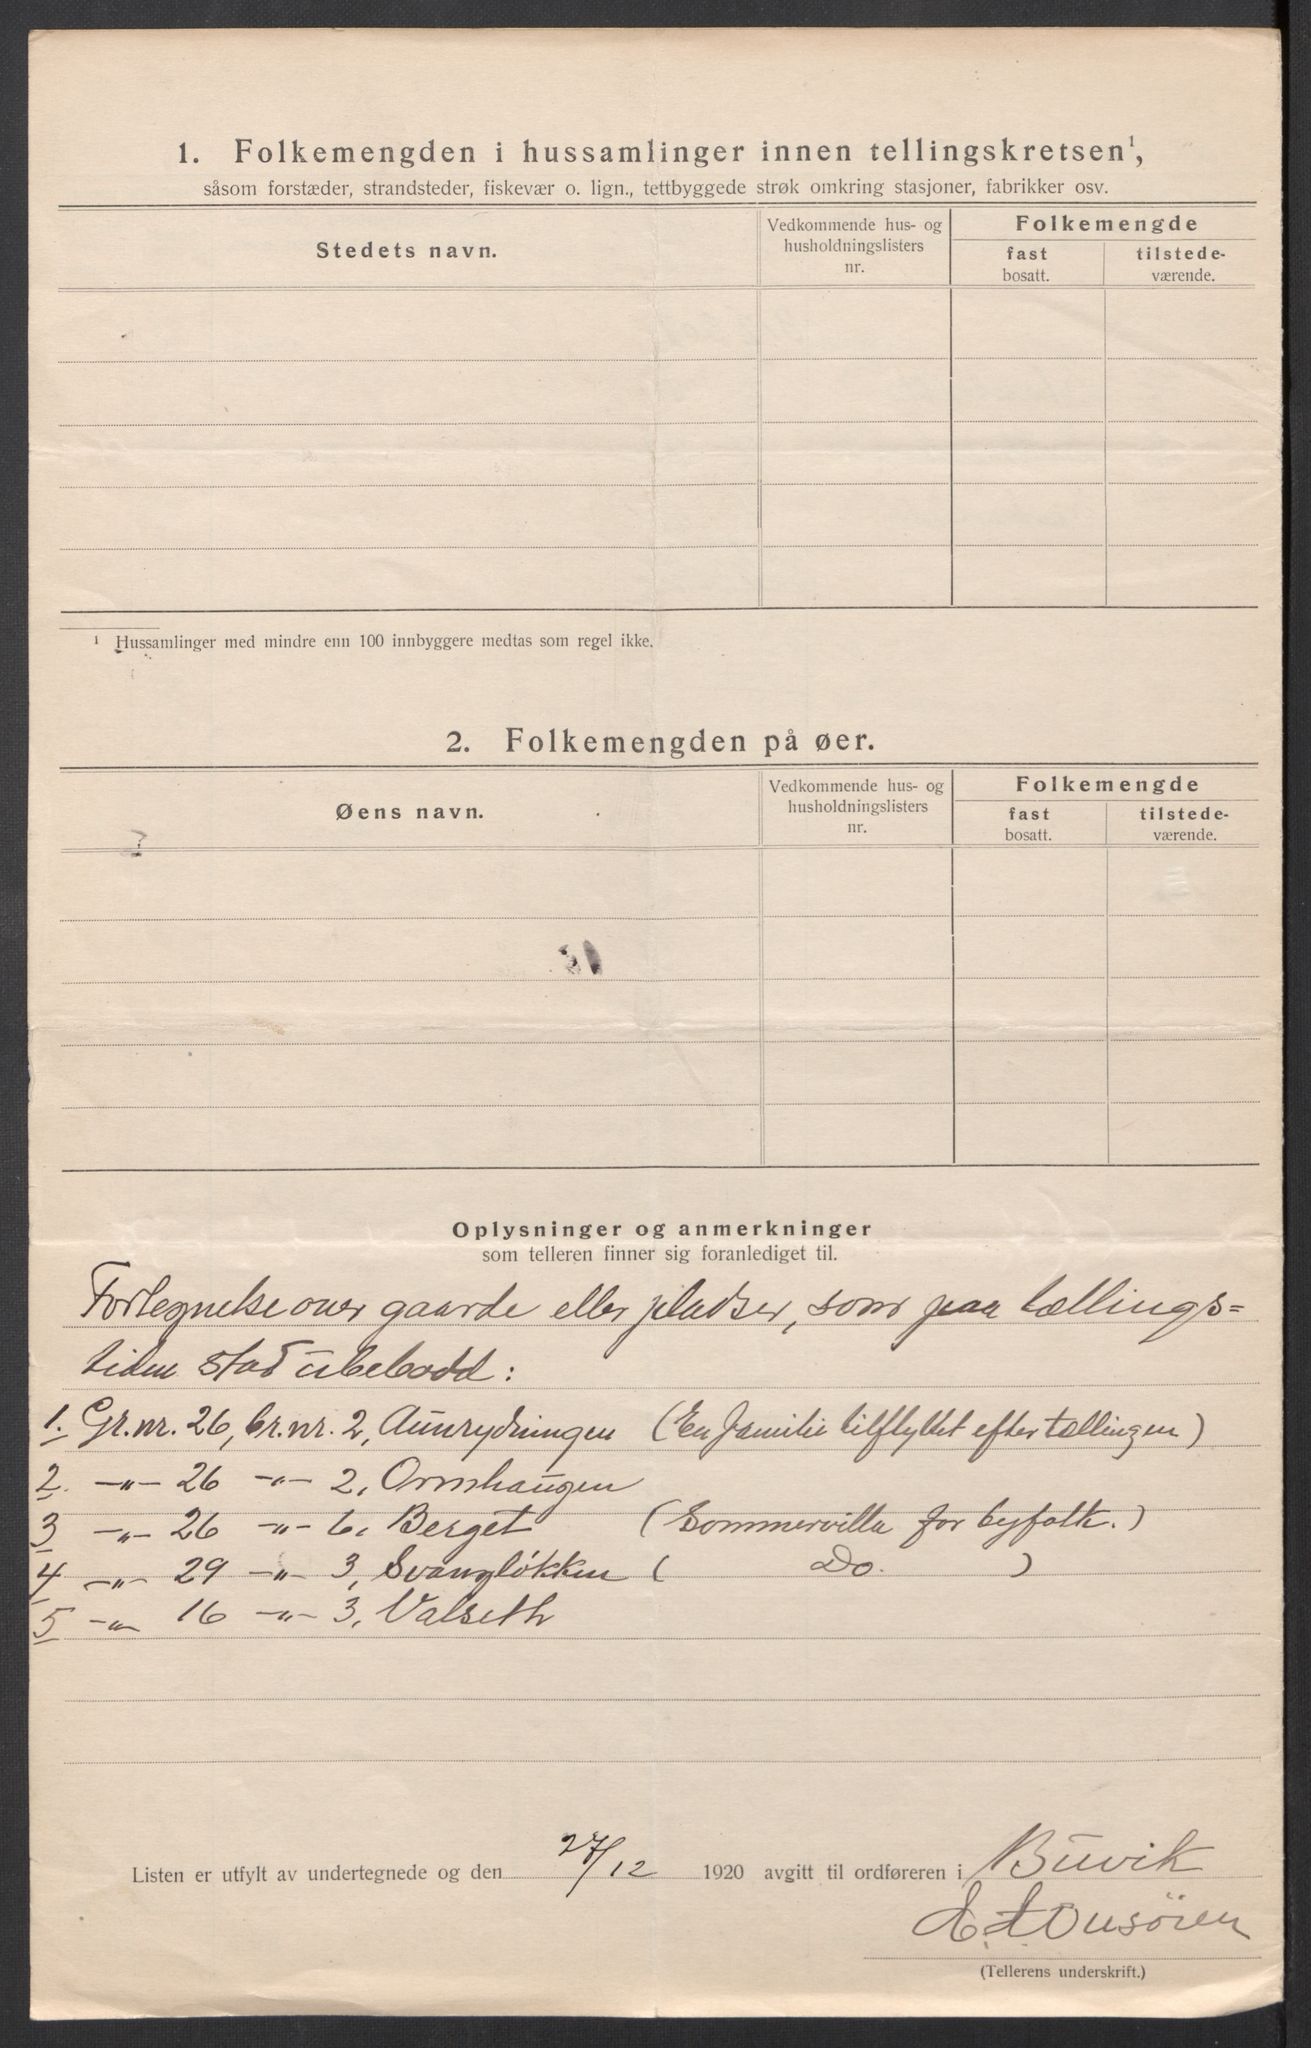 1. Folkemengden i hussamlinger innen tellingskretsen¹,
såsom forstæder, strandsteder, fiskevær o. lign., tettbyggede strøk omkring stasjoner, fabrikker osv.
Stedets navn.
Vedkommende hus- og
husholdningslisters
nr.
Folkemengde
fast
bosatt.
tilstede-
værende.
¹ Hussamlinger med mindre enn 100 innbyggere medtas som regel ikke.
2. Folkemengden på øer.
Øens navn.
Vedkommende hus- og
husholdningslisters
nr.
Folkemengde
fast
bosatt.
tilstede-
værende.
Oplysninger og anmerkninger
som telleren finner sig foranlediget til.
Fortegnelse over gaarde eller pladser, som paa tællings=
tiden stod ubebodd:
1. Gr.nr. 26, br.nr. 2, Aunrydningen (En familie tilflyttet efter tællingen)
2. -„- 26 -„- 2, Ormhaugen
3 -„- 26 -„- 6, Berget (Sommervilla for byfolk.)
4 -„- 29 -„- 3, Svangløkken ( Do. )
5 -„- 16 -„- 3, Valseth
Listen er utfylt av undertegnede og den 27/12 1920 avgitt til ordføreren i Buvik
E. Onsöien
(Tellerens underskrift.)